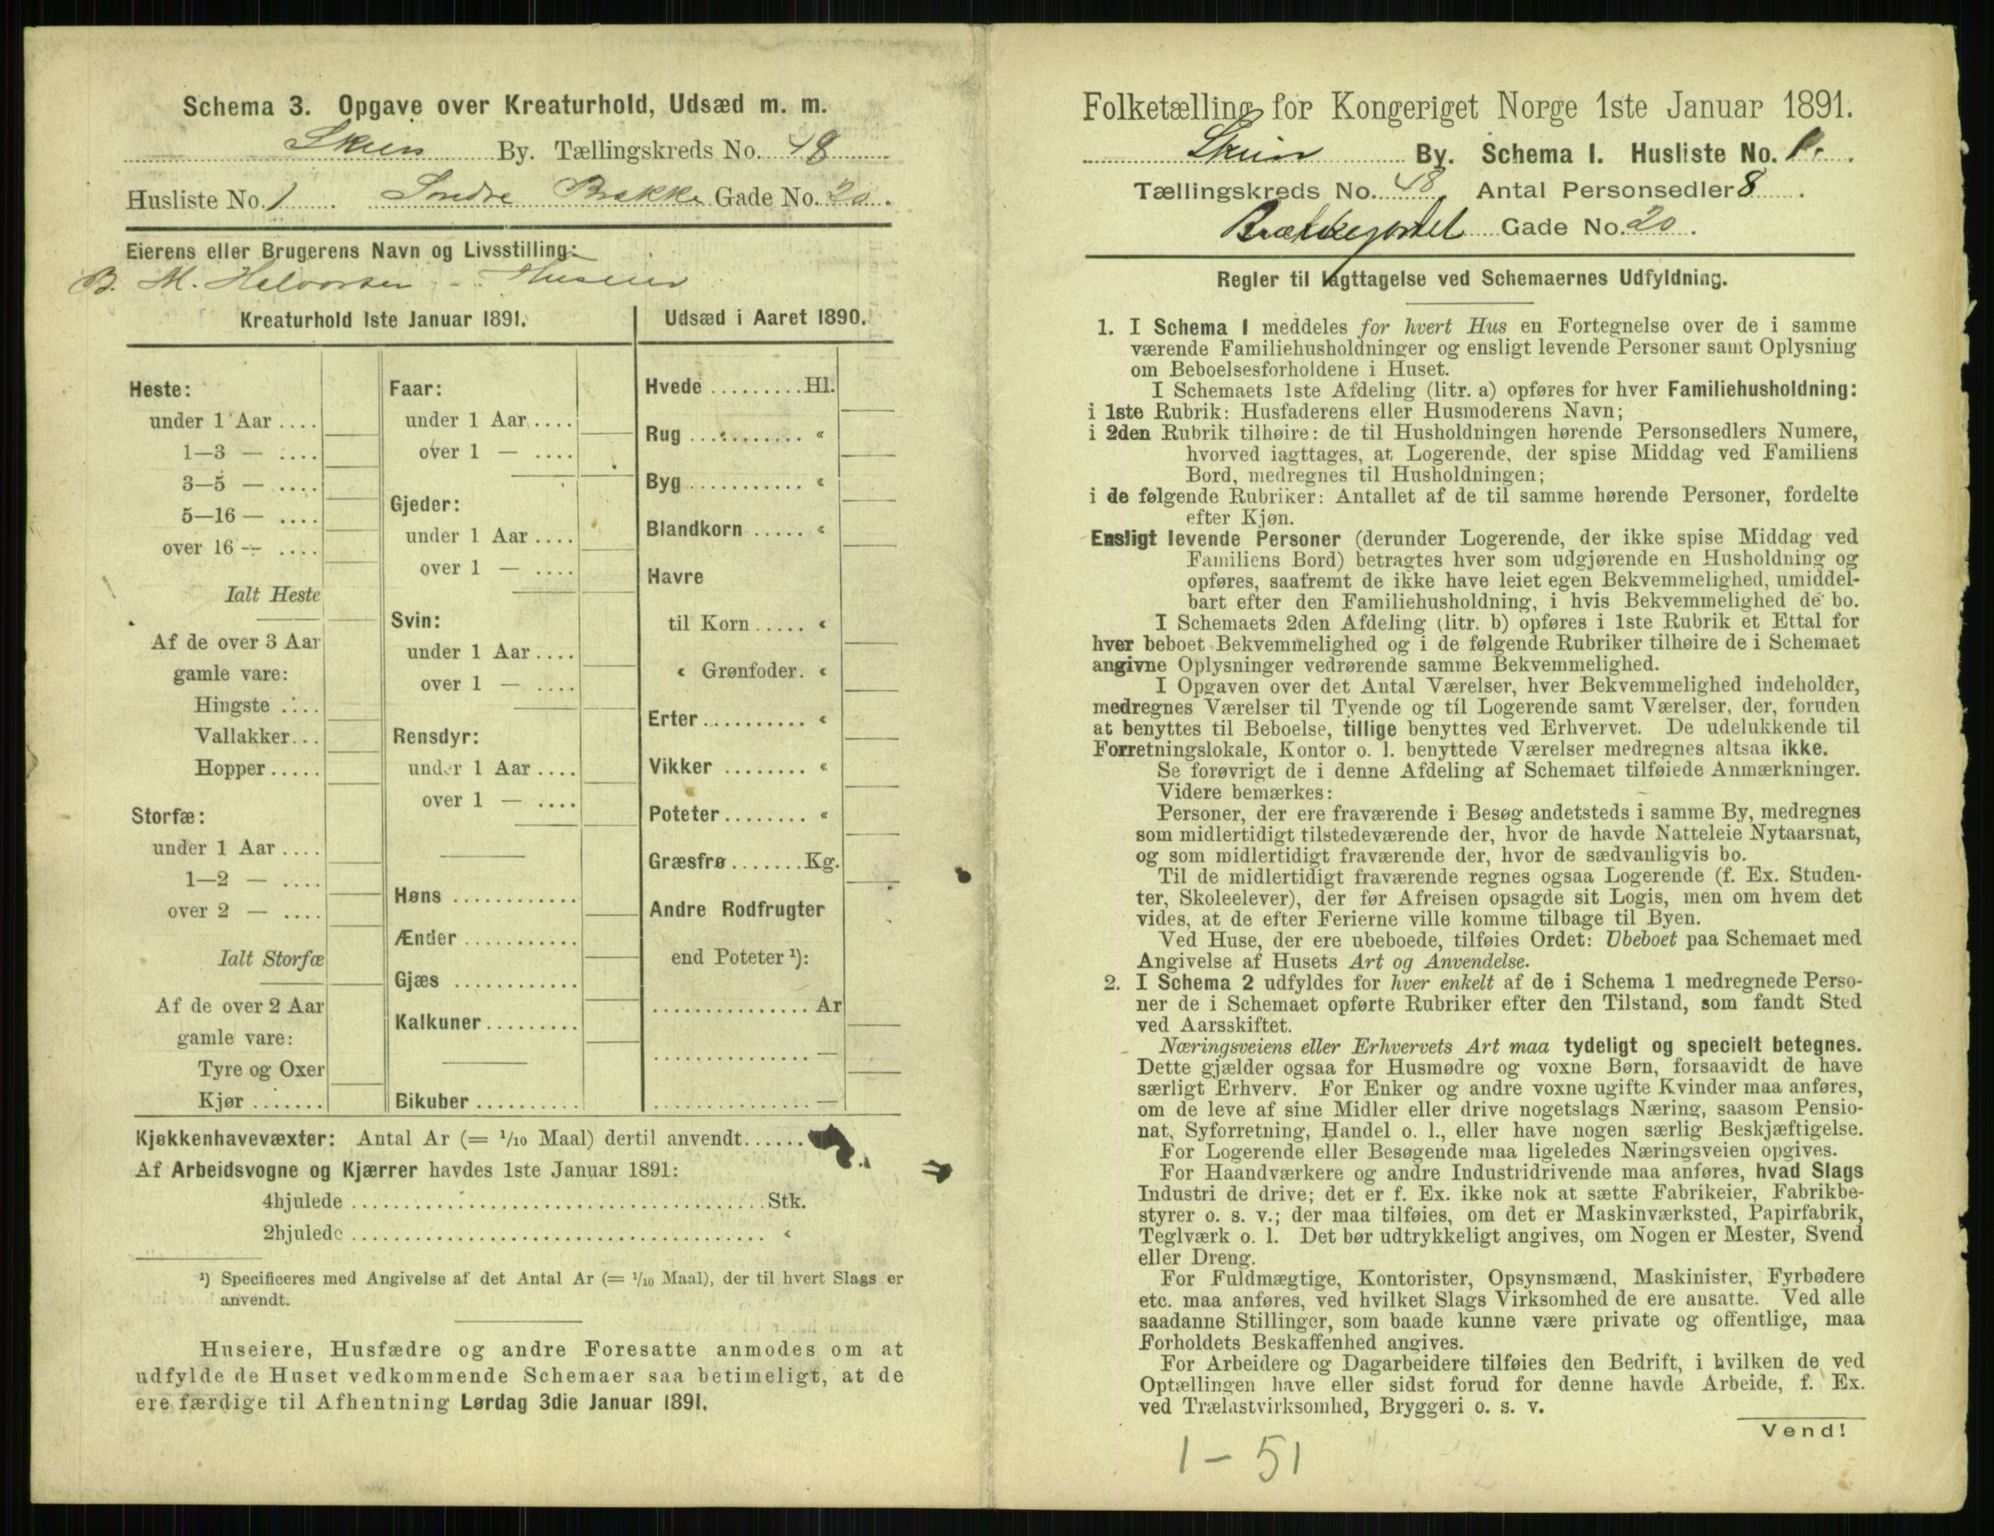 Schema 3. Opgave over Kreaturhold, Udsæd m. m.
Skien By. Tællingskreds No. 48
Husliste No. 1 Søndre Brekke Gade No. 20.
Eierens eller Brugerens Navn og Livsstilling:
B. M. Halvorsen - Huseier
Kreaturhold 1ste Januar 1891.
Heste:
under 1 Aar ....
1—3 — ....
3—5 — ....
5—16 — ....
over 16 — ....
Ialt Heste
Af de over 3 Aar
gamle vare:
Hingste ....
Vallakker...
Hopper.....
Storfæ:
under 1 Aar ....
1—2 — ....
over 2 — ....
Ialt Storfæ
Af de over 2 Aar
gamle vare:
Tyre og Oxer
Kjør .......
Faar:
under 1 Aar....
over 1 — ....
Gjeder:
under 1 Aar....
over 1 — ....
Svin:
under 1 Aar....
over 1 — ....
Rensdyr:
under 1 Aar....
over 1 — ....
Høns ............
Ænder...........
Gjæs ............
Kalkuner.........
Bikuber ..........
Udsæd i Aaret 1890.
Hvede .........Hl.
Rug ........... «
Byg............ «
Blandkorn ..... «
Havre
til Korn ..... «
« Grønfoder. «
Erter.......... «
Vikker ........ «
Poteter........ «
Græsfrø.......Kg.
Andre Rodfrugter
end Poteter ¹):
............... Ar
............... —
............... —
Kjøkkenhavevæxter: Antal Ar (= 1/10 Maal) dertil anvendt......
Af Arbeidsvogne og Kjærrer havdes 1ste Januar 1891:
4hjulede ......................................Stk.
2hjulede ...................................... «
¹) Specificeres med Angivelse af det Antal Ar (= 1/10 Maal), der til hvert Slags er
anvendt.
Huseiere, Husfædre og andre Foresatte anmodes om at
udfylde de Huset vedkommende Schemaer saa betimeligt, at de
ere færdige til Afhentning Lørdag 3die Januar 1891.
Folketælling for Kongeriget Norge 1ste Januar 1891.
Skien By. Schema I. Husliste No. 1.
Tællingskreds No. 48 Antal Personsedler 8
Brækkejordet Gade No. 20.
Regler til Iagttagelse ved Schemaernes Udfyldning.
1. I Schema 1 meddeles for hvert Hus en Fortegnelse over de i samme
værende Familiehusholdninger og ensligt levende Personer samt Oplysning
om Beboelsesforholdene i Huset.
I Schemaets 1ste Afdeling (litr. a) opføres for hver Familiehusholdning:
i 1ste Rubrik: Husfaderens eller Husmoderens Navn;
i 2den Rubrik tilhøire: de til Husholdningen hørende Personsedlers Numere,
hvorved iagttages, at Logerende, der spise Middag ved Familiens
Bord, medregnes til Husholdningen;
i de følgende Rubriker: Antallet af de til samme hørende Personer, fordelte
efter Kjøn.
Ensligt levende Personer (derunder Logerende, der ikke spise Middag ved
Familiens Bord) betragtes hver som udgjørende en Husholdning og
opføres, saafremt de ikke have leiet egen Bekvemmelighed, umiddel-
bart efter den Familiehusholdning, i hvis Bekvemmelighed de bo.
I Schemaets 2den Afdeling (litr. b) opføres i 1ste Rubrik et Ettal for
hver beboet Bekvemmelighed og i de følgende Rubriker tilhøire de i Schemaet
angivne Oplysninger vedrørende samme Bekvemmelighed.
I Opgaven over det Antal Værelser, hver Bekvemmelighed indeholder,
medregnes Værelser til Tyende og til Logerende samt Værelser, der, foruden
at benyttes til Beboelse, tillige benyttes ved Erhvervet. De udelukkende til
Forretningslokale, Kontor o. l. benyttede Værelser medregnes altsaa ikke.
Se forøvrigt de i denne Afdeling af Schemaet tilføiede Anmærkninger.
Videre bemærkes:
Personer, der ere fraværende i Besøg andetsteds i samme By, medregnes
som midlertidigt tilstedeværende der, hvor de havde Natteleie Nytaarsnat,
og som midlertidigt fraværende der, hvor de sædvanligvis bo.
Til de midlertidigt fraværende regnes ogsaa Logerende (f. Ex. Studen-
ter, Skoleelever), der før Afreisen opsagde sit Logis, men om hvem det
vides, at de efter Ferierne ville komme tilbage til Byen.
Ved Huse, der ere ubeboede, tilføies Ordet: Ubeboet paa Schemaet med
Angivelse af Husets Art og Anvendelse.
2. I Schema 2 udfyldes for hver enkelt af de i Schema 1 medregnede Perso-
ner de i Schemaet opførte Rubriker efter den Tilstand, som fandt Sted
ved Aarsskiftet.
Næringsveiens eller Erhvervets Art maa tydeligt og specielt betegnes.
Dette gjælder ogsaa for Husmødre og voxne Børn, forsaavidt de have
særligt Erhverv. For Enker og andre voxne ugifte Kvinder maa anføres,
om de leve af sine Midler eller drive nogetslags Næring, saasom Pensio-
nat, Syforretning, Handel o. l., eller have nogen særlig Beskjæftigelse.
For Logerende eller Besøgende maa ligeledes Næringsveien opgives.
For Haandværkere og andre Industridrivende maa anføres, hvad Slags
Industri de drive; det er f. Ex. ikke nok at sætte Fabrikeier, Fabrikbe-
styrer o. s. v.; der maa tilføies, om det er Maskinværksted, Papirfabrik,
Teglværk o. l. Det bør udtrykkeligt angives, om Nogen er Mester, Svend
eller Dreng.
For Fuldmægtige, Kontorister, Opsynsmænd, Maskinister, Fyrbødere
etc. maa anføres, ved hvilket Slags Virksomhed de ere ansatte. Ved alle
saadanne Stillinger, som baade kunne være private og offentlige, maa
Forholdets Beskaffenhed angives.
For Arbeidere og Dagarbeidere tilføies den Bedrift, i hvilken de ved
Optællingen have eller sidst forud for denne havde Arbeide, f. Ex.
ved Trælastvirksomhed, Bryggeri o. s. v.
Vend!
1 - 51